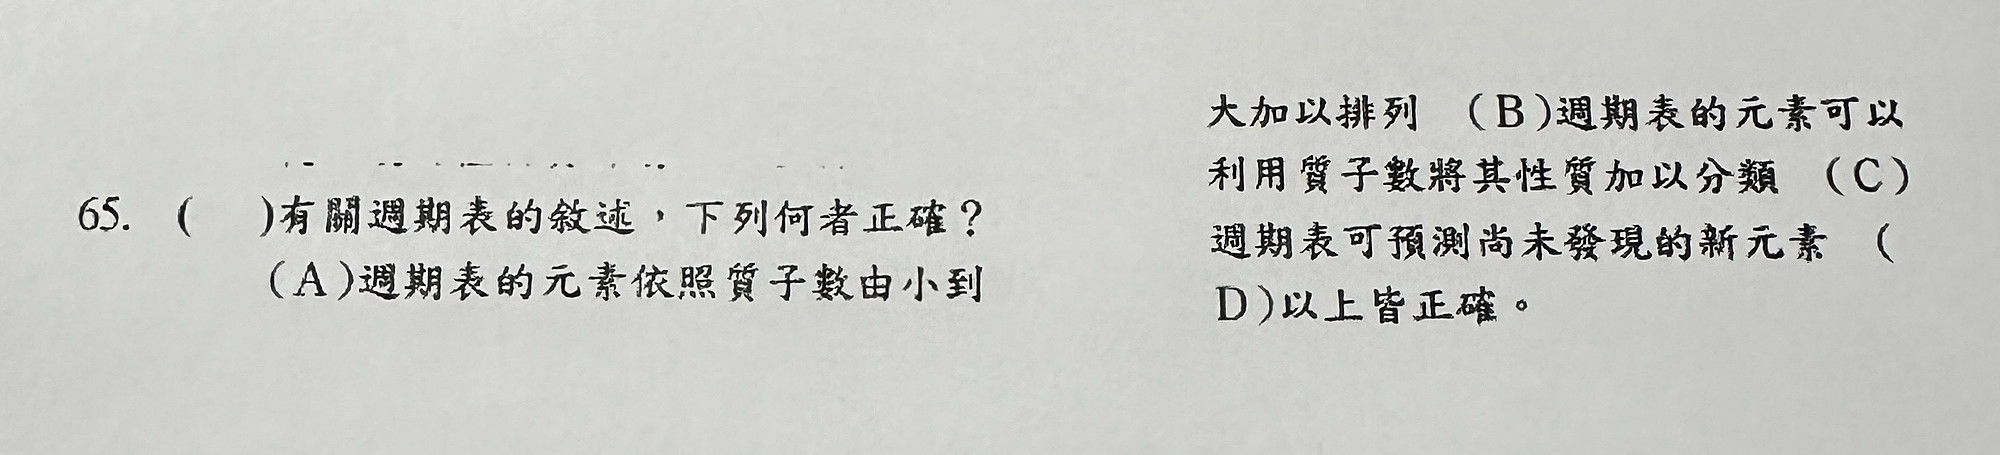 65. (　)有關週期表的敘述，下列何者正確？
(A)週期表的元素依照質子數由小到
大加以排列　(B)週期表的元素可以
利用質子數將其性質加以分類　(C)
週期表可預測尚未發現的新元素　(
D)以上皆正確。